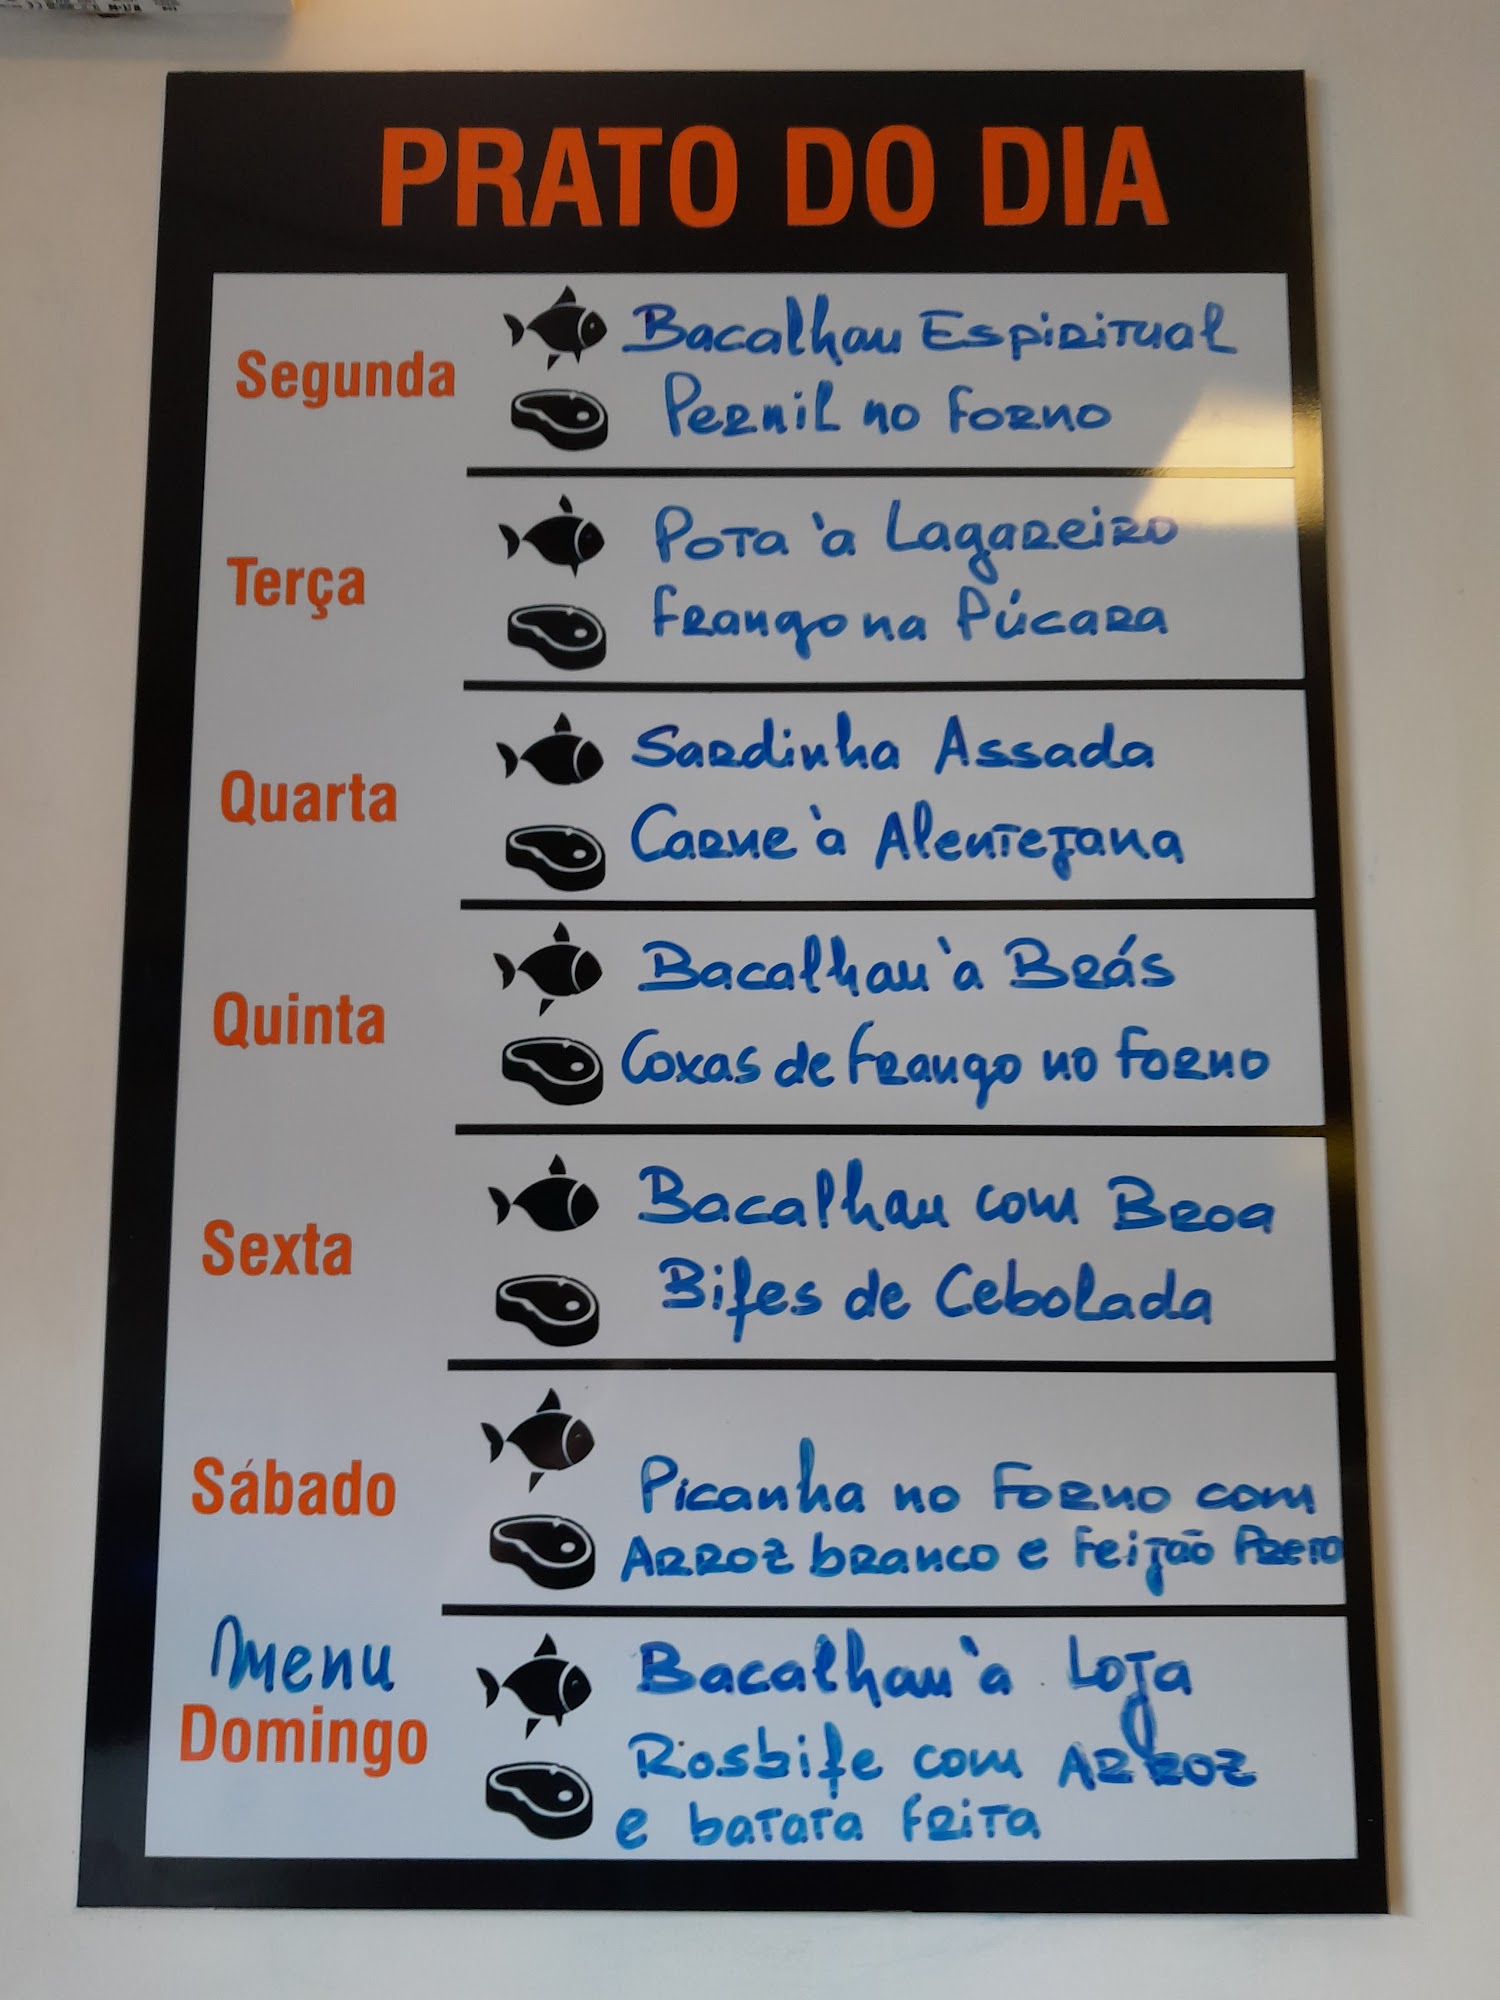 PRATO DO DIA
Segunda
Bacalhau Espiritual
Pernil no Forno
Terça
Pota à Lagareiro
Frango na Púcara
Quarta
Sardinha Assada
Carne à Alentejana
Quinta
Bacalhau à Brás
Coxas de Frango no Forno
Sexta
Bacalhau com Broa
Bifes de Cebolada
Sábado
Picanha no Forno com
Arroz branco e Feijão Preto
Menu
Domingo
Bacalhau à Loja
Rosbife com Arroz
e batata frita